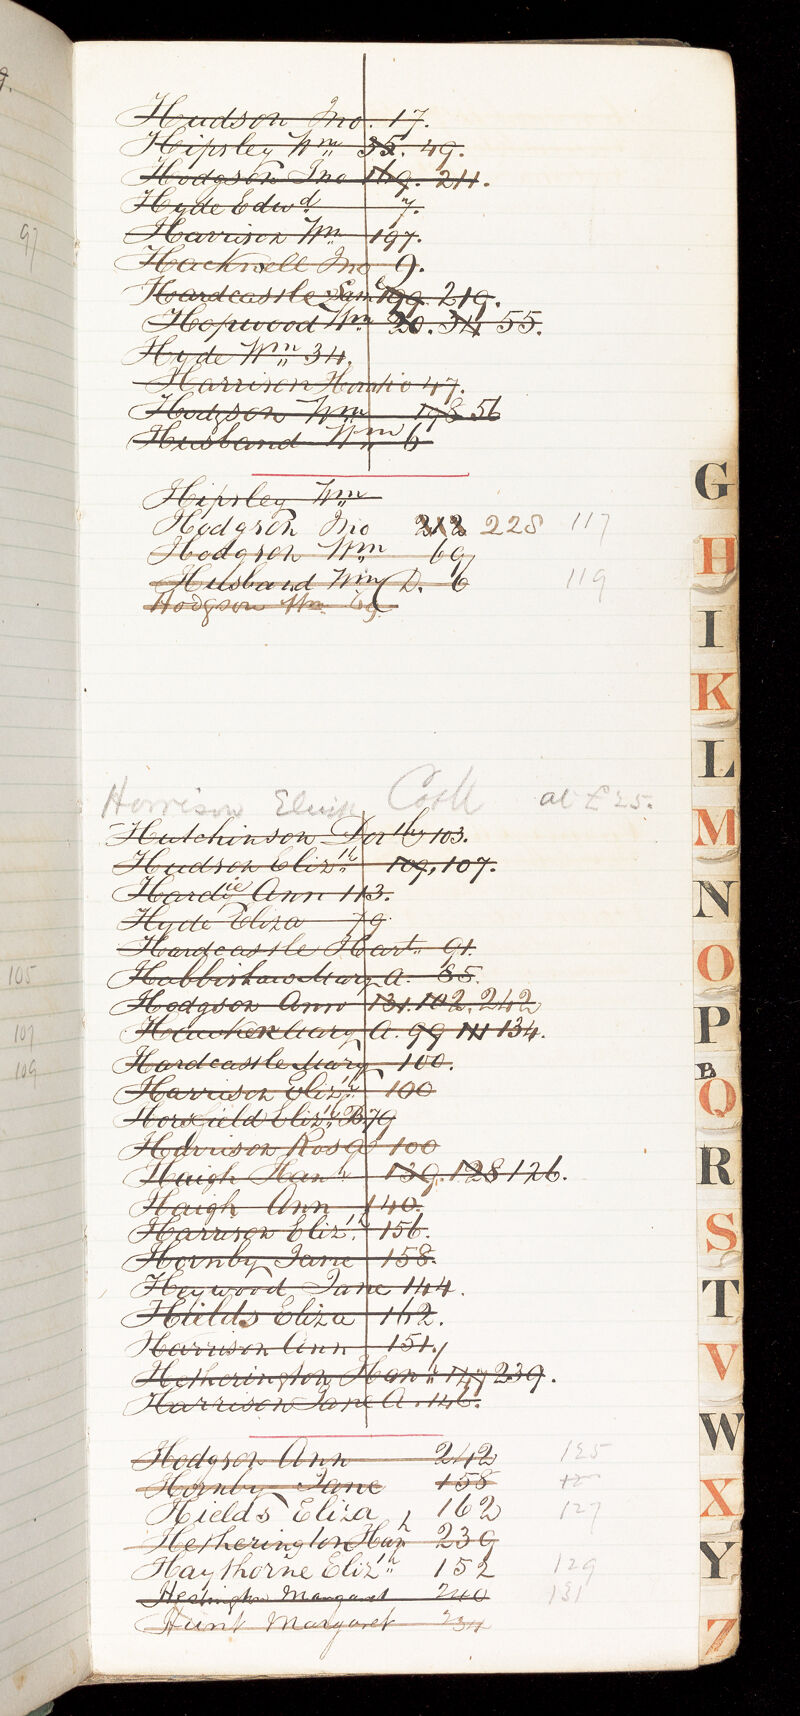 97
Hudson Jno. 17.
Hipsley Wm 35. 49.
Hodgson Jno 169. 211.
Hyde Edwd. 7.
Harrison Wm 197.
Hacknell Jno 9.
Hardcastle Saml 199. 219.
Hopwood Wm 20. 34 55.
Hyde Wm 34.
Harrison Horatio 47.
Hodgson Wm 198 56
Husband Wm 6
Hipsley Wm
Hodgson Jno 212 228 117
Hodgson Wm 69
Husband Wm D. 6 119
Hodgson Wm 69
Harrison Cook at £25.
Hutchinson Dorthy 103.
Hudson Elizth 109, 107.
Hardie Ann 113.
Hyde Eliza 79
Hardcastle Hart. 91.
Habbishaw Mary A. 85.
Hodgson Ann 131. 102. 242
Hawken Mary A. 99 111 134.
Hardcastle Mary 100.
Harrison Elizth 100
Horsfield Elizth B 79
Harrison Rosa 100
Haigh Hanh 139. 128 126.
Haigh Ann 140.
Harrison Elizth 156.
Hornby Jane 158.
Heywood Jane 144.
Hields Eliza 162.
Harrison Ann 151.
Hetherington Hanh 147 239.
Harrison Jane A. 146.
Hodgson Ann 242 125
Hornby Jane 158
Hields Eliza 162 127
Hetherington Hanh 239
Haythorne Elizth 152 129
Margaret 240 131
Hunt Margaret 234
105
107
109
G
H
I
K
L
M
N
O
P
B
Q
R
S
T
V
W
X
Y
Z